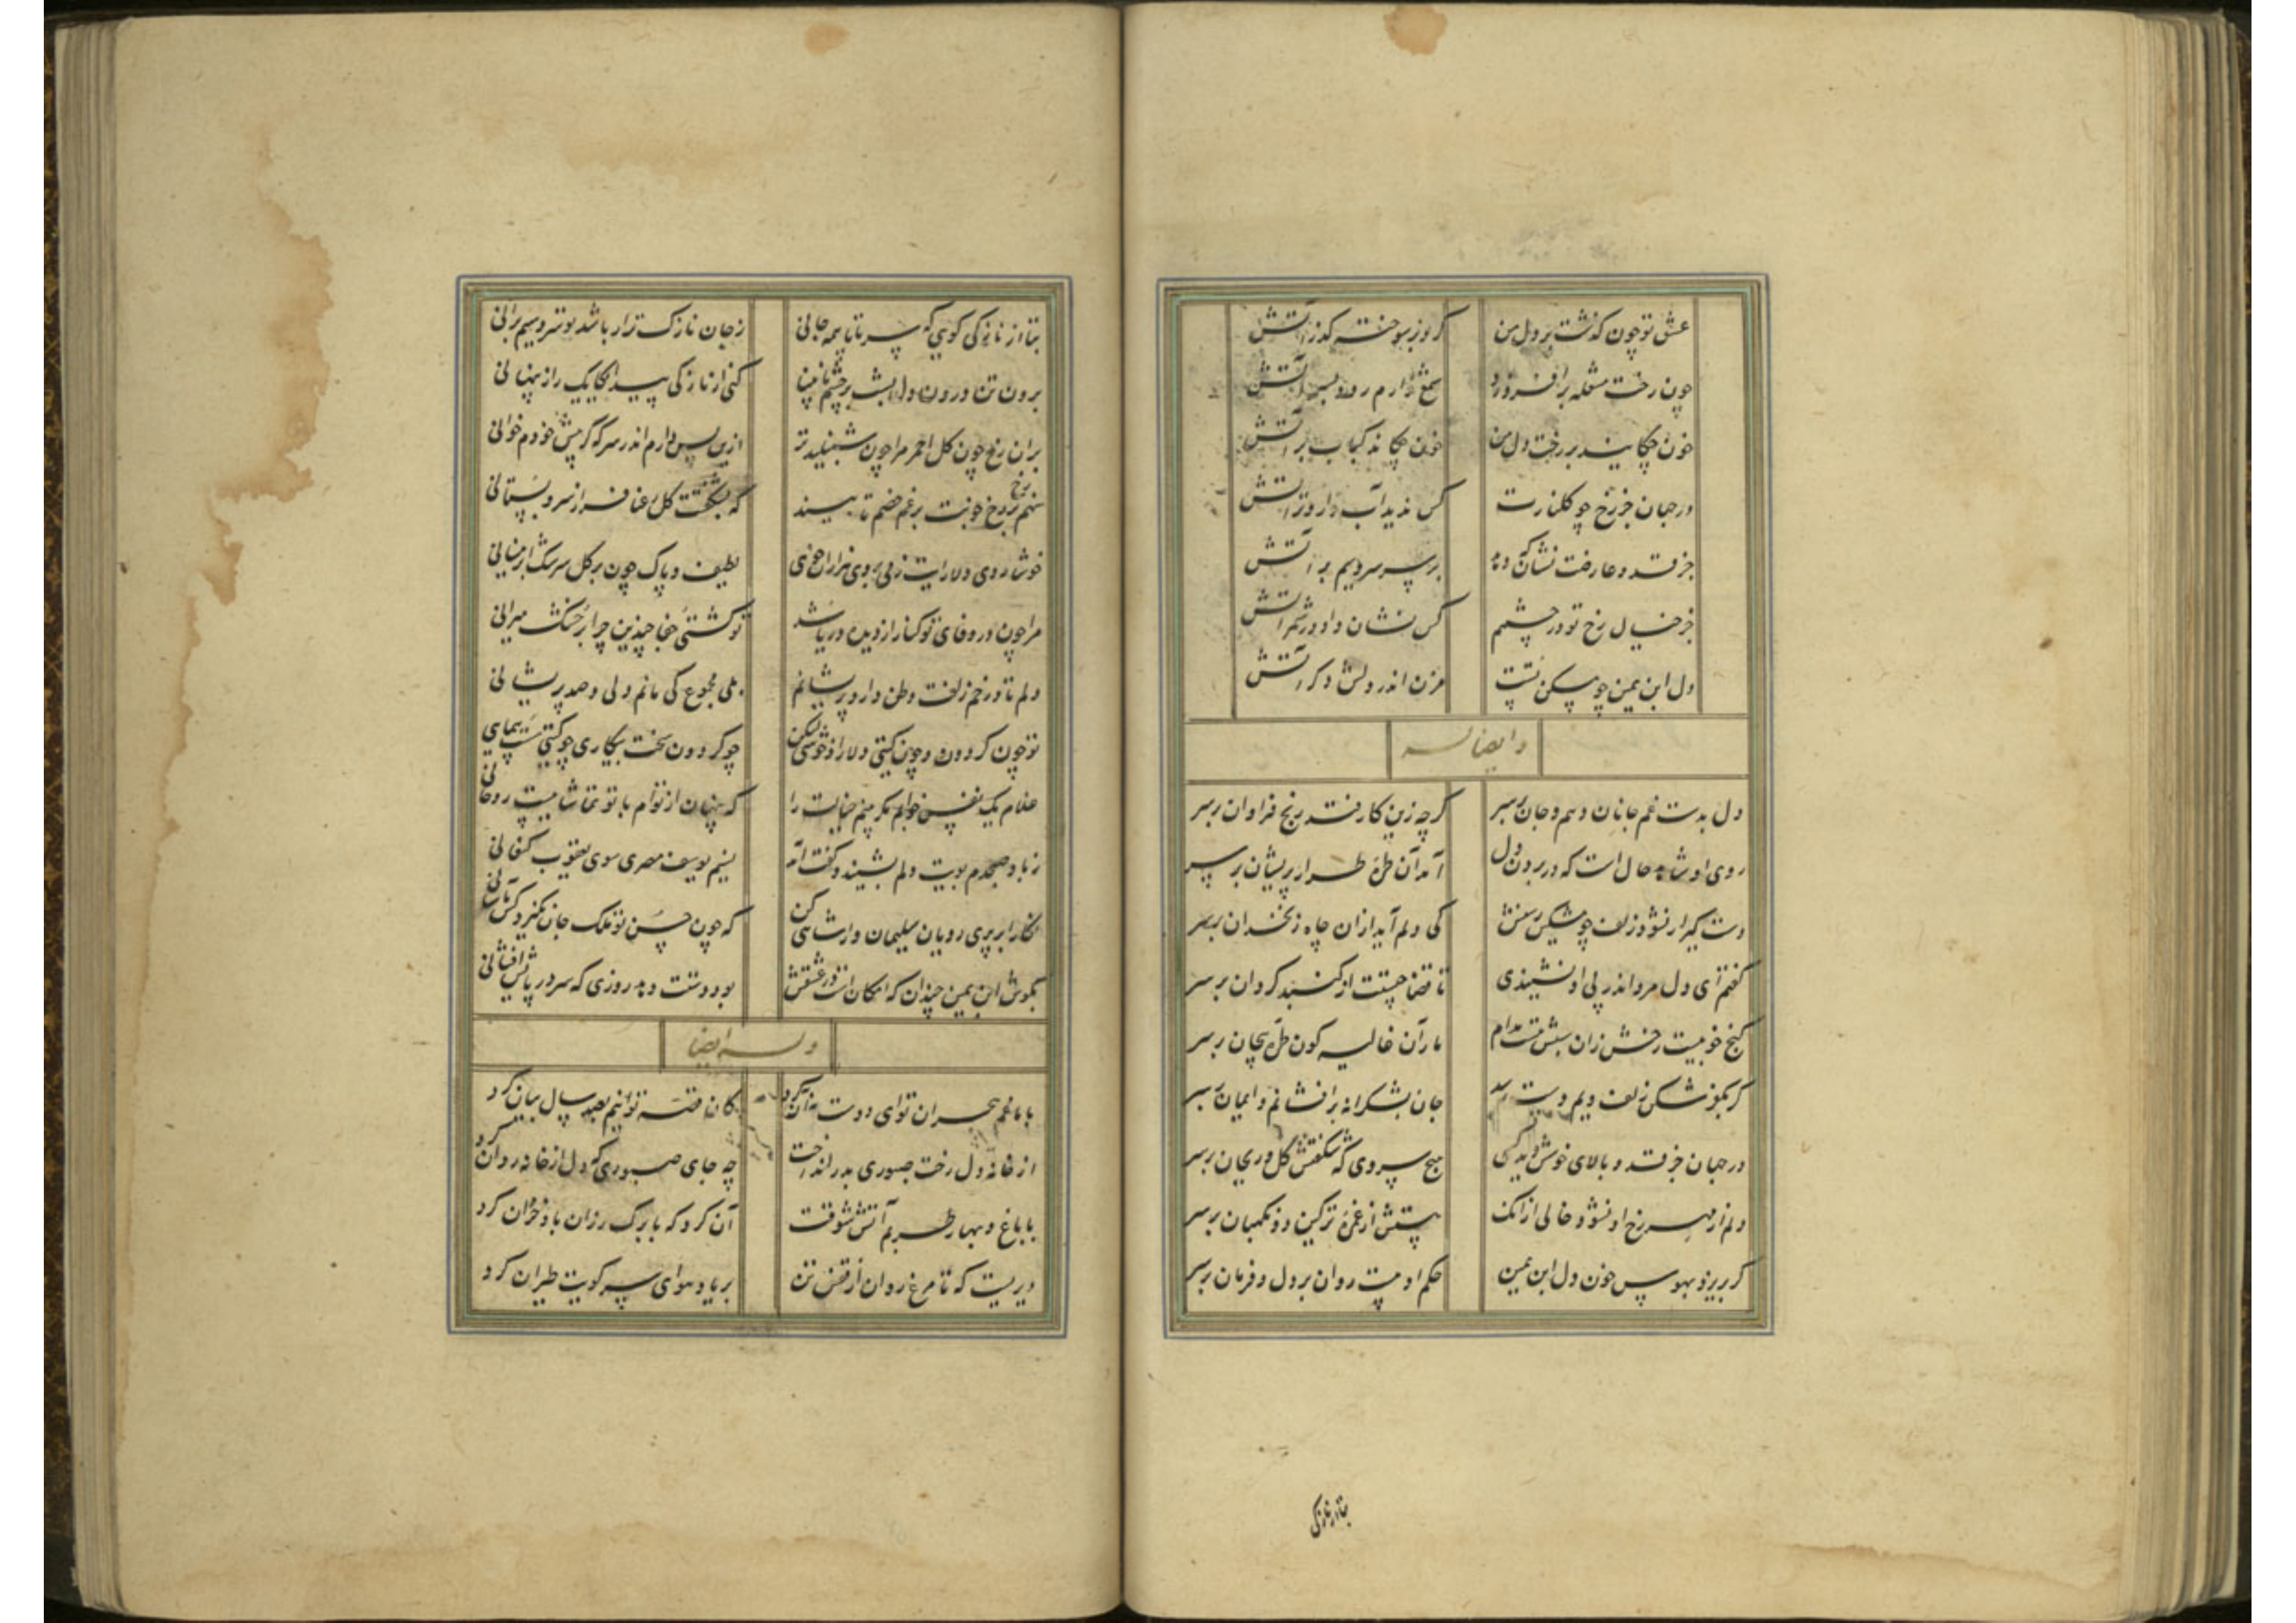 عشق تو چون گذشت بر دل من
کرد بر سوخته گذر آتش
چون رخت مشعله برافروزد
شمع دارم رود بسر آتش
خون چکاند بر رخت دل من
خون چکاند کباب بر آتش
در جهان جز رخ چو گلنارت
کس ندید آب دار و تر آتش
جز قد و عارضت نشان که دهد
بر سر سرو سیم بر آتش
جز خیال رخ تو در چشمم
کس نشان داد در شمر آتش
دل ابن یمین چو مسکن تست
مزن اندر دلش دگر آتش
و ایضا له
دل بدست غم جانان دهم و جان بر سر
گرچه زین کار فتد رنج فراوان بر سر
روی او شاهد حال است که در بردن دل
آمد آن طره طرار پریشان بر سر
دست گیر ار نشود زلف چو مشکین رسنش
کی دلم آید ازان چاه زنخدان بر سر
گفتم ای دل مرو اندر پی او نشنیدی
تا قضا چیست از گنبد گردان بر سر
گنج خوبیست رخش زان سببش هست مدام
مار آن غالیه گون طره پیچان بر سر
گر بموئی شکن زلف ویم دست رسد
جان بشکرانه برافشانم و ایمان بر سر
در جهان جز قد و بالای خوشش دید کسی
هیچ سروی که شکفتش گل و ریحان بر سر
دلم از مهر رخ او نشود خالی ازانک
هستش از غمزه ترکین دو نگهبان بر سر
گر بریزد بهوس خون دل ابن یمین
حکم او هست روان بر دل و فرمان بر سر
بتا از نازکی
بتا از نازکی گویی که سر تا پا همه جانی
ز جان نازک‌تر ار باشد تو سرو سیم بر آنی
برون تن درون دل بشد بر چشم نابینا
کنی از نازکی پیدا یکایک راز پنهانی
بران رخ چون گل احمر مرا چون شنبلید تر
ازین پس دارم اندر سر که گر پیش خودم خوانی
نهم رخ بر رخ خوبت برغم خصم تا بیند
که بشکفتست گل رعنا فراز سرو بستانی
خوشا روی دلارایت زمی بر وی هزاران خوی
لطیف و پاک چون بر گل سرشک ابر نیسانی
مرا چون در وفای تو کنار از دیده دریا شد
تو کشتی جفا چندین چرا بر خشک میرانی
دلم تا در خم زلفت وطن دارد پریشانم
بلی مجموع کی مانم دلی و صد پریشانی
تو چون گردون و چون گیتی دلارا و خوشی لیکن
چو گردون سخت بیکاری چو گیتی سست پیمانی
غلام یک نفس خوابم مگر بینم خیالت را
که پنهان از توام با تو تماشائیست روحانی
ز باد صبحدم بویت دلم بشنید و گفت آمد
نسیم یوسف مصری سوی یعقوب کنعانی
نگارا بر پری رویان سلیمان وار شاهی کن
که چون حسن تو ملک جان نگیرد کس بآسانی
بکوش ابن یمین چندان که امکان است در عشقش
بود دستت دهد روزی که سر در پایش افشانی
وله ایضا
با ما غم هجران تو ای دوست نه آن کرد
کان قصه توانیم بصد سال بیان کرد
از خانه دل رخت صبوری بدر انداخت
چه جای صبوری که دل از خانه روان کرد
با باغ و بهار طربم آتش شوقت
آن کرد که با برگ رزان باد خزان کرد
دیریست که تا مرغ روان از قفس تن
بر یاد هوای سر کویت طیران کرد